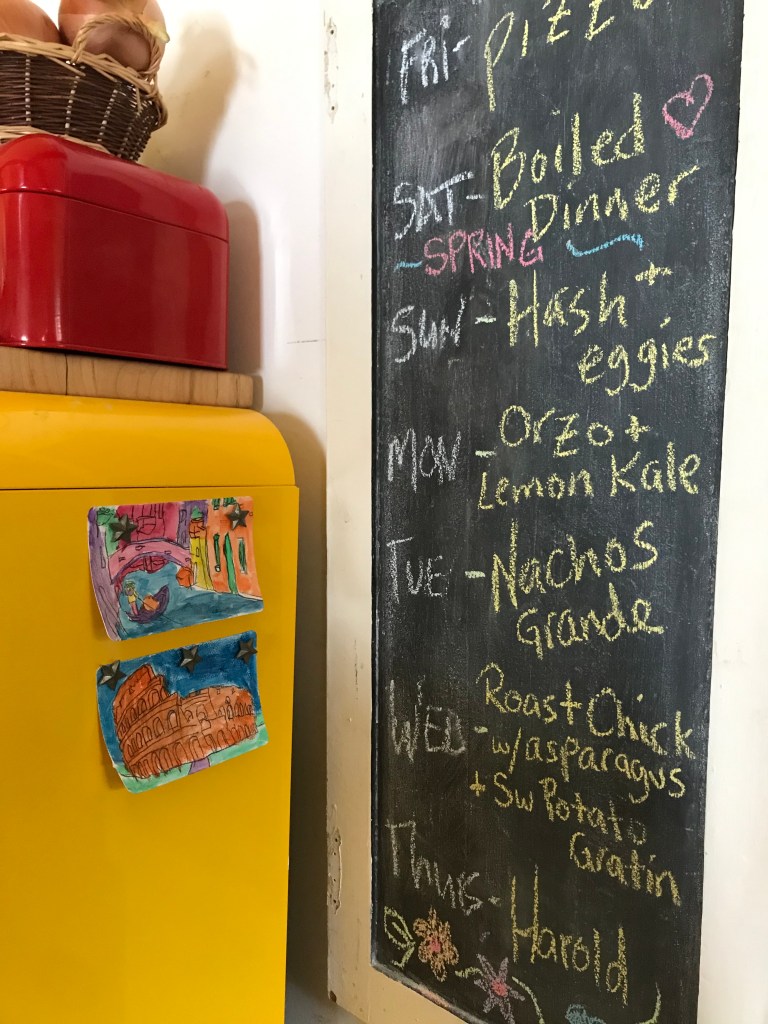 FRI- Pizza
SAT- Boiled
Dinner
~SPRING~
SUN - Hash +
eggies
MON - Orzo +
Lemon Kale
TUE - Nachos
Grande
WED - Roast Chick
w/asparagus
+ Sw Potato
Gratin
Thurs- Harold